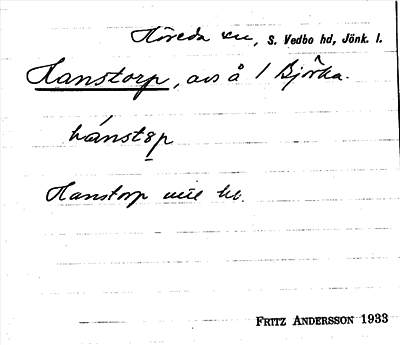 Höreda sn, S. Vedbo hd, Jönk. l.
Hanstorp, avs å / Björka.
hánstəp
Hanstorp
FRITZ ANDERSSON 1933